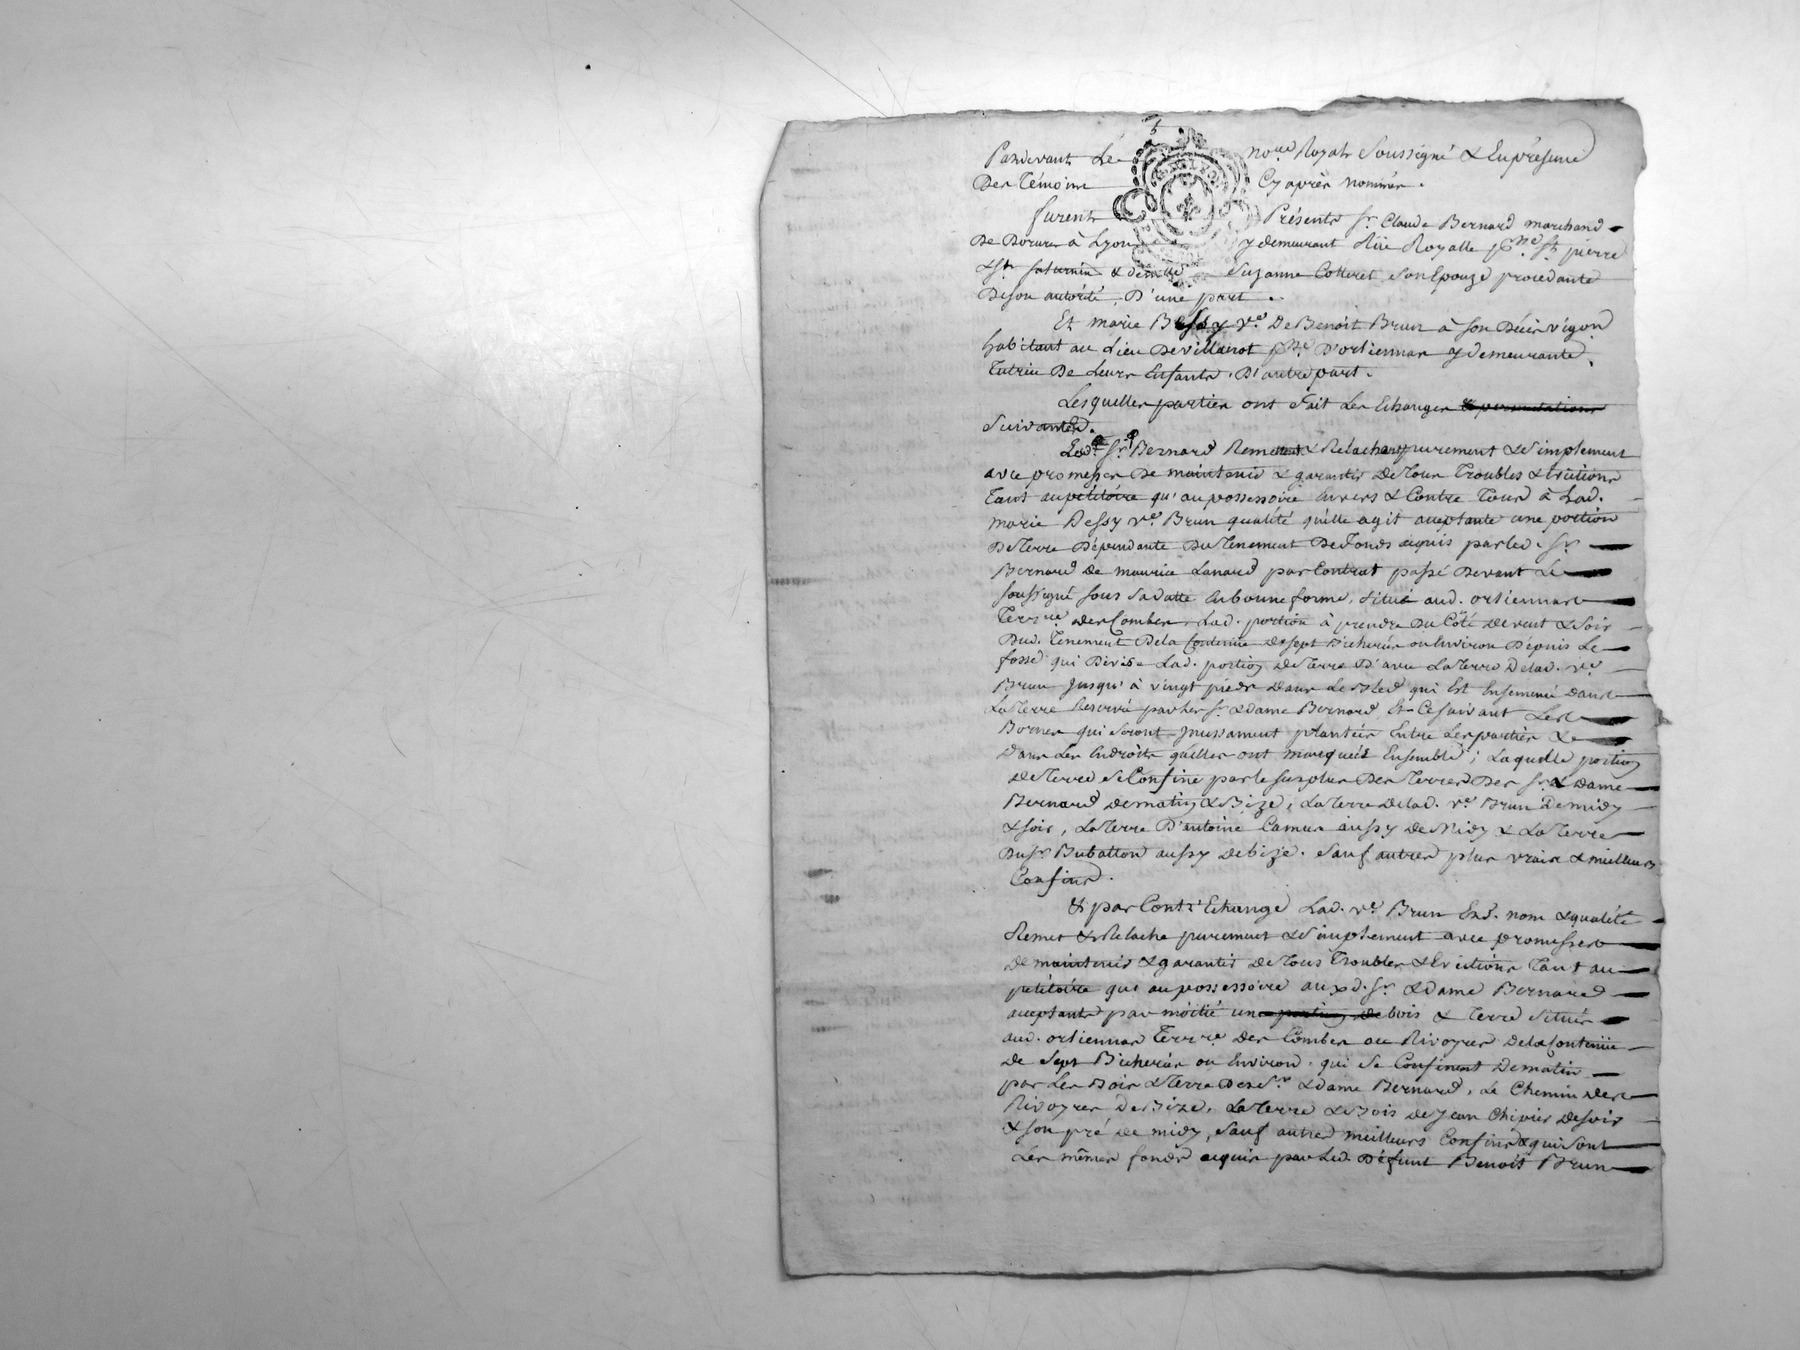 Pardevant Le no.re Royal Soussigné & En présence
Des Témoins Cy après nommés.
furent Présents Sr. Claude Bernard marchand
De Dorures à Lyon y demeurant Rüe Royalle psse. St. pierre
& St. Saturnin & demlle. Suzanne Cotteret son Epouze procedante
De son autorité, D'une part.
Et marie Dessy ve. De Benoit Brun à son Décès vigon
habitant au Lieu De villanot psse. D'orliennas y demeurante,
Tutrice De Leurs Enfants, D'autre part.
Lesquelles parties ont fait Les Echanges & permutations
Suivantes.
Led. Sr. Bernard Remet & Relache purement & Simplement
avec promesses De maintenir & garantir De Tous Troubles & Evictions
Tant au petitoire qu'au possessoire Envers & Contre Tous à Lad.
marie Dessy ve. Brun qualité qu'elle agit acceptante une portion
De Terre Dépendante Du Tenement De Fonds acquis par led. Sr.
Bernard De maurice Lanard par Contrat passé Devant Le
soussigné sous Sa datte En bonne forme, situé aud. orliennas
Terr.re Des Combes, Lad. portion à prendre Du Côté De vent & Soir
Dud. Tenement De la Contenue De Sept Bicherées ou Environ Dépuis Le
fossé qui Divise Lad. portion De Terre D'avec La Terre De lad. ve.
Brun Jusqu'à vingt pieds Dans Le Bled qui Est Ensemencé Dans
La Terre Reservée par Les Sr. & dame Bernard Et Ce suivant Les
Bornes qui Seront Incessament plantées Entre Les parties &
Dans Les Endroits qu'elles ont marqués Ensemble; Laquelle portion
De Terre Se Confine par le surplus Des Terres Des Sr. & Dame
Bernard De matin & Bize, La Terre De lad. ve. Brun De midy
& soir, La Terre D'antoine Camus aussy De Midy & La Terre
Du Sr. Bubatton aussy De bize. Sauf autres plus vrais & meilleurs
Confins.
& par Contr'Echange Lad. ve. Brun Esd. nom & qualité
Remet & Relache purement & Simplement avec promesses
De maintenir & garantir De Tous Troubles & Evictions Tant au
petitoire qu'au possessoire aux d. Sr. & Dame Bernard
acceptants par moitié une portion De bois & Terre Situés
aud. orliennas Terr.re Des Combes ou Rivoyres De la Contenüe
De Sept Bicherées ou Environ. qui Se Confinent De matin
par Les Bois & Terre Des Sr. & dame Bernard, Le Chemin Des
Rivoyres De Bize, La Terre & Bois De Jean Chivier De soir
& son pré De midy, Sauf autres meilleurs Confins & qui Sont
Les mêmes fonds acquis par Led. Défunt Benoit Brun